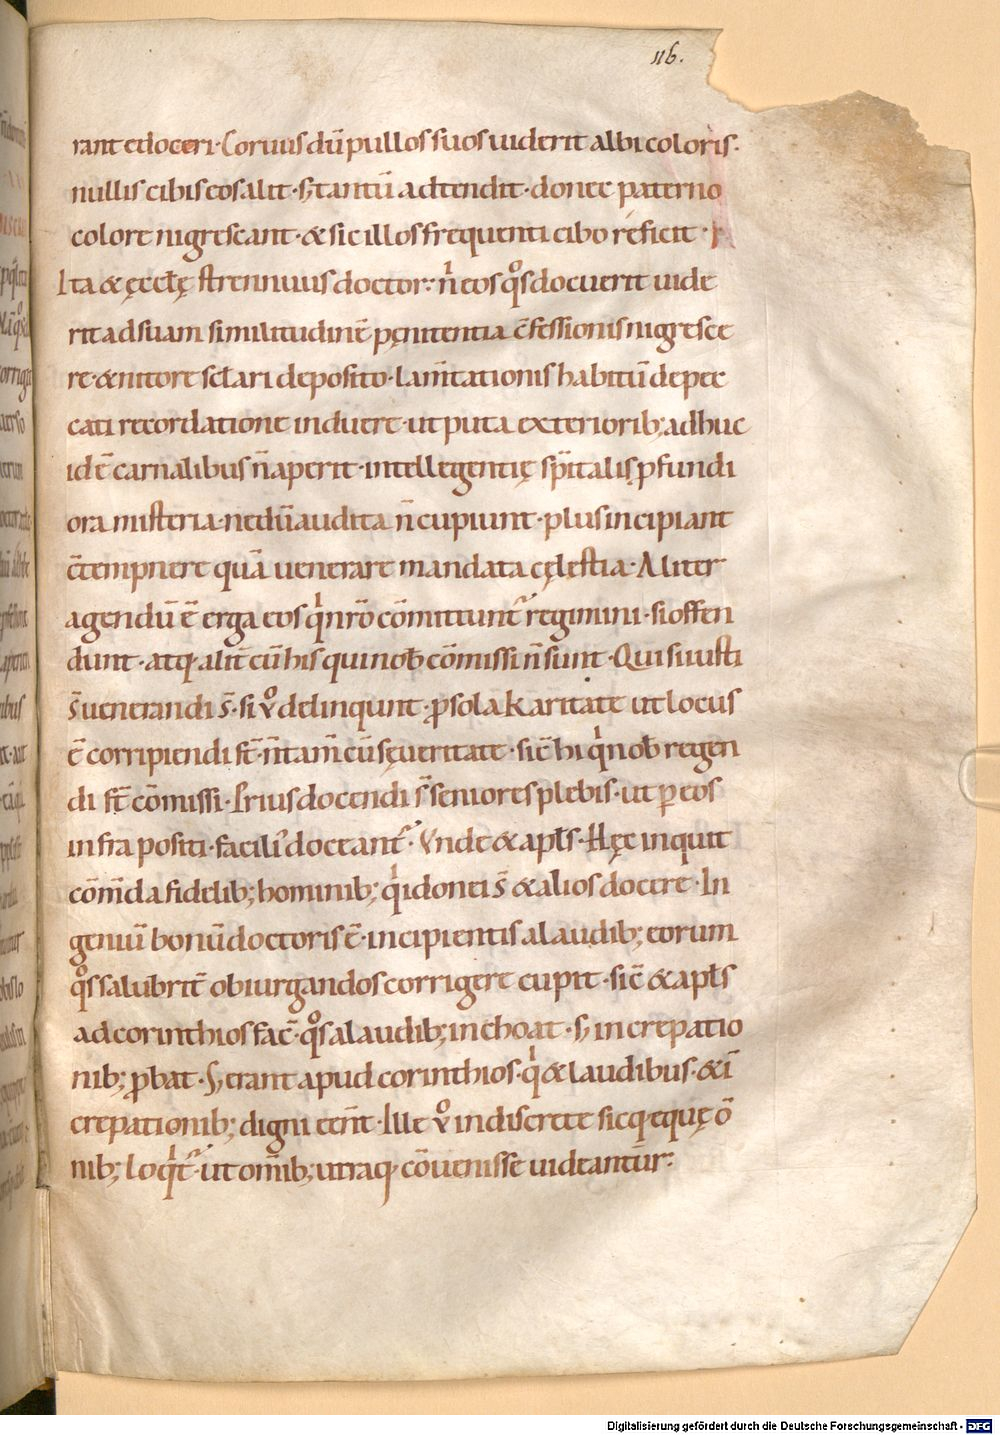 116.
rant edoceri· Coruus dū pullos suos uiderit albi coloris·
nullis cibis eos alit· s; tantū adtendit· donec paterno
colore nigrescant· & sic illos frequenti cibo reficit·
Ita & ęcctę strennuus doctor· n̄ eos qͦs docuerit uide
rit ad suam similitudinē pęnitentia c̄fessionis nigresce
re· & nitore sctari deposito· lam̄tationis habitū de pec
cati recordatione induere· ut puta exteriorib; adhuc
id ē carnalibus n̄ aperit· intellegentię sp̄italis pfundi
ora misteria· ne dū audita n̄ cupiunt· plus incipiant
c̄tempnere quā uenerare mandata cęlestia· Aliter
agendū ē erga eos qͥ nr̄o cōmittunt᷑ regimini· si offen
dunt· atq; alit̄ cū his qui nob̄ cōmissi n̄ sunt· Qui si iusti
s̄ uenerandi s̄· si vͦ delinqunt· ꝓ sola karitate ut locus
ē corripiendi st̄· n̄ tam̄ cū sęueritate· sic̄ hi qͥ nob̄ regen
di st̄ cōmissi· Prius docendi s̄ seniores plebis· ut ꝑ eos
infra positi· facili᷒ doceant᷑· Vnde & apls· Hęc inquit
cōm̄da fidelib; hominib; qͥ idonei s̄ & alios docere· In
geniū bonū doctoris ē· incipientis a laudib; eorum
qͦs salubrit̄ obiurgandos corrigere cupit· sic̄ & apls
ad corinthios fac̄· qͦs a laudib; inchoat· s; increpatio
nib; ꝓbat· S; erant apud corinthios· qͥ & laudibus· & ī
crepationib; digni eēnt· Ille vͦ indiscrete sic q; equę ō
nib; loqͥt᷑· ut om̄ib; utraq; cōuenisse uideantur·
Digitalisierung gefördert durch die Deutsche Forschungsgemeinschaft - DFG